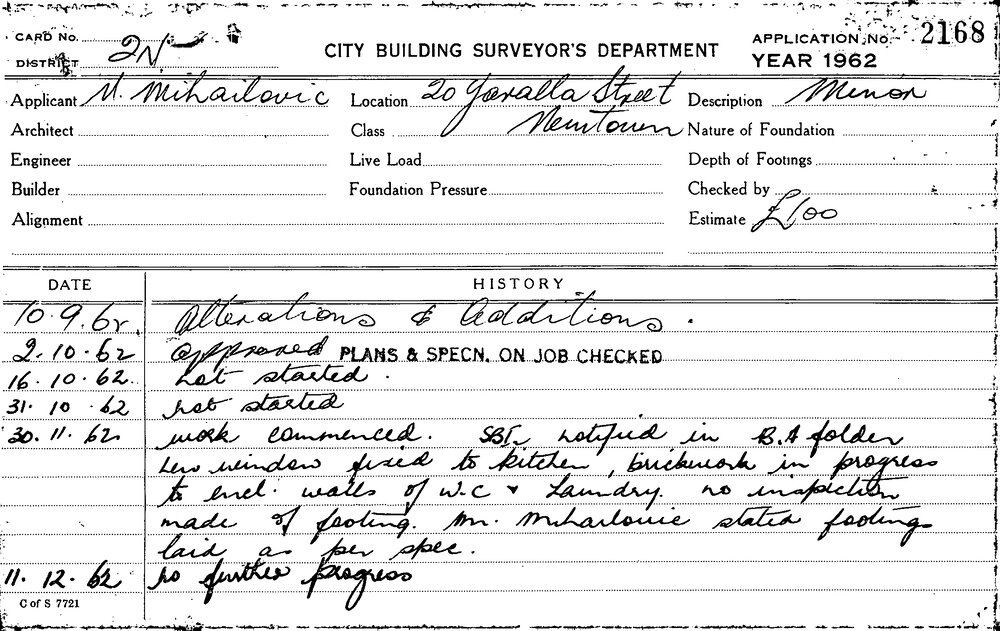 CARD No.
DISTRICT 2N
CITY BUILDING SURVEYOR'S DEPARTMENT
APPLICATION No. 2168
YEAR 1962
Applicant M. Mihailovic Location 20 Yaralla Street Description Minor
Architect Class Newtown Nature of Foundation
Engineer Live Load Depth of Footings
Builder Foundation Pressure Checked by
Alignment Estimate £100
DATE HISTORY
10.9.62. Alterations & Additions.
2.10.62 approved PLANS & SPECN. ON JOB CHECKED
16.10.62. not started.
31.10.62 not started
30.11.62 work commenced. SBI. notified in B.A folder
new window fixed to kitchen, brickwork in progress
to encl. walls of W.C & Laundry. no inspection
made of footing. Mr. Mihailovic stated footings
laid as per spec.
11.12.62 no further progress
C of S 7721